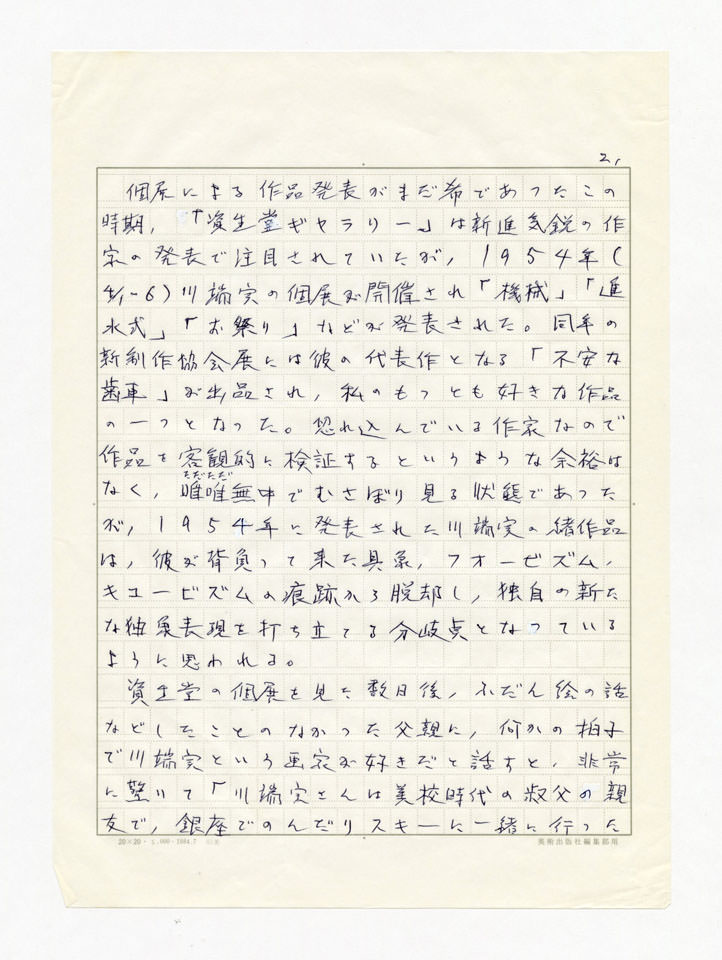 2,
個展による作品発表がまだ希であったこの
時期,「資生堂ギャラリー」は新進気鋭の作
家の発表で注目されていたが,1954年(
4/1-6)川端実の個展が開催され「機械」「進
水式」「お祭り」などが発表された。同年の
新制作協会展には彼の代表作となる「不安な
歯車」が出品され,私のもっとも好きな作品
の一つとなった。惚れ込んでいる作家なので
作品を客観的に検証するというような余裕は
ただただ
なく,唯唯無中でむさぼり見る状態であった
が,1954年に発表された川端実の緒作品
は,彼が背負って来た具象,フォービズム,
キュービズムの痕跡から脱却し,独自の新た
な独象表現を打ち立てる分岐点となっている
ように思われる。
資生堂の個展を見た数日後,ふだん絵の話
などしたことのなかった父親に,何かの拍子
で川端実という画家が好きだと話すと,非常
に驚いて「川端実さんは美校時代の叔父の親
友で,銀座でのんだりスキーに一緒に行った
20×20・ 1,000・1984.7
美術出版社編集部用